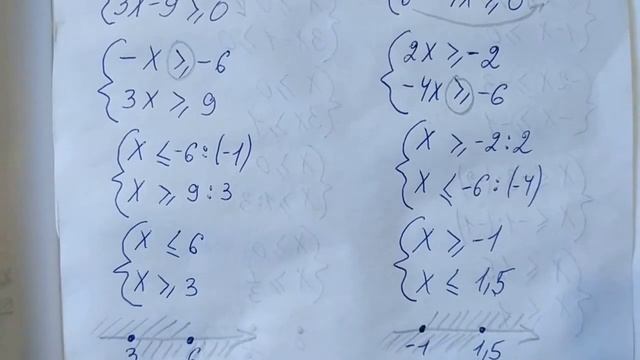 3x-9⩾0
-x⩾-6
3x⩾9
x≤-6:(-1)
x⩾9:3
x≤6
x⩾3
3 6
2x⩾-2
-4x⩾-6
x⩾-2:2
x≤-6:(-4)
x⩾-1
x≤1,5
-1 1,5